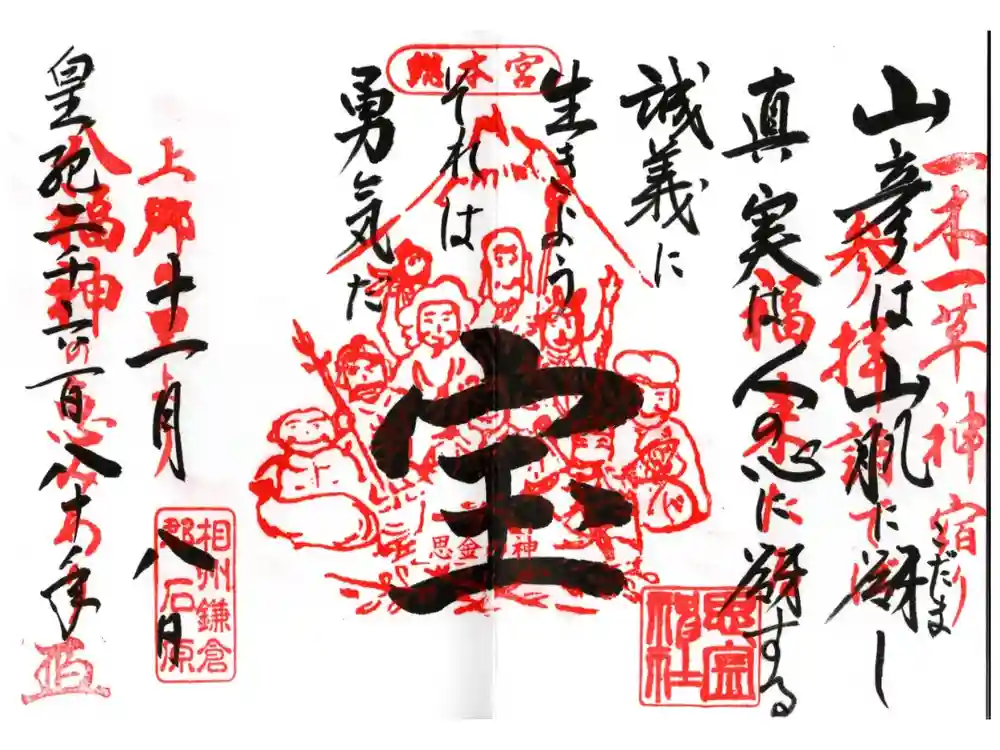 一木一草神宿り
山彦は山肌に谺し
こだま
参拝
真実は人の心に谺する
福
誠義に
生きよう
それは
勇気だ
総本宮
宝
思金の神
思金神社
上郷
十一月八日
相州鎌倉
郡石原
八福神
皇紀二千六百八十年